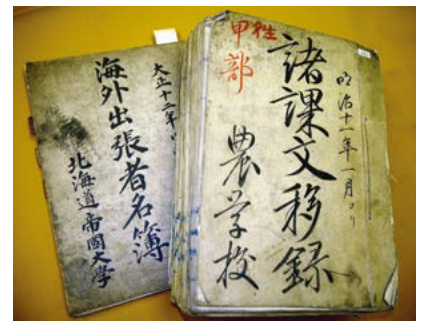 大正十二年
海外出張者名簿
北海道帝國大學
明治十一年一月ヨリ
諸課文移録
農学校
甲
部